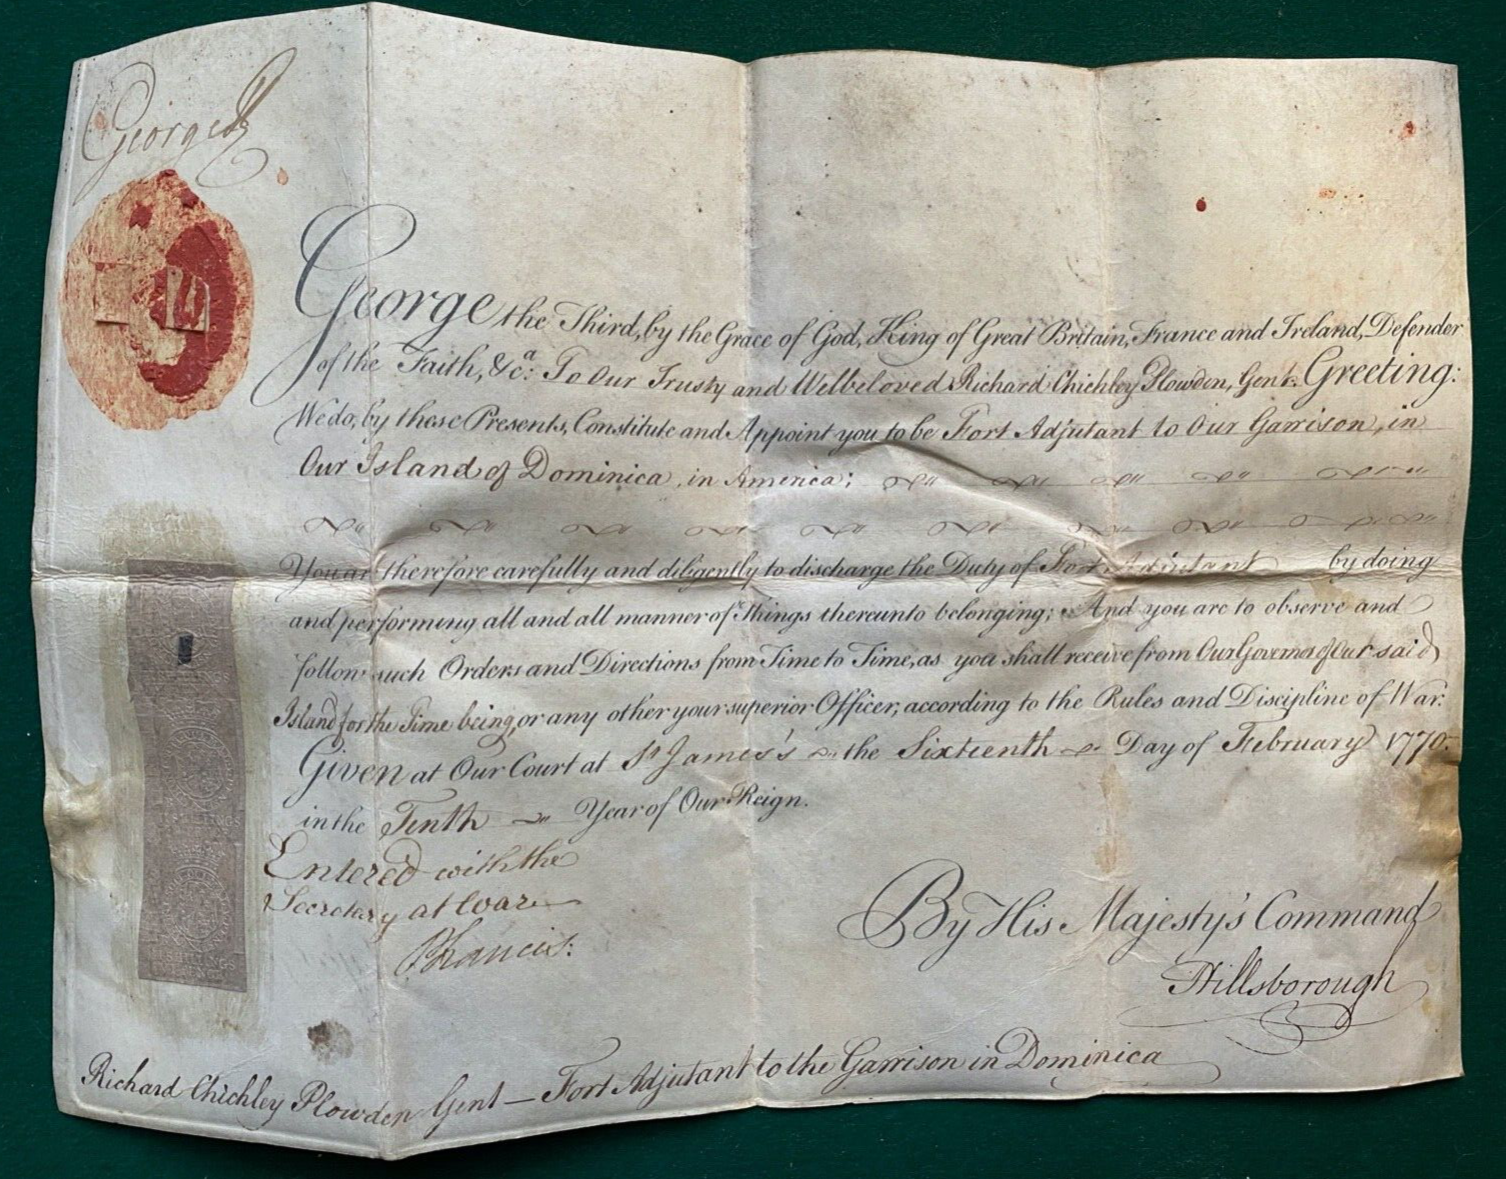 George R
George the Third, by the Grace of God, King of Great Britain, France and Ireland, Defender
of the Faith, &c.a To Our Trusty and Welbeloved Richard Chichley Plowden, Gent. Greeting:
We do, by these Presents, Constitute and Appoint you to be Fort Adjutant to Our Garrison, in
Our Island of Dominica, in America;
You are therefore carefully and diligently to discharge the Duty of Fort Adjutant by doing
and performing all and all manner of Things thereunto belonging; And you are to observe and
follow such Orders and Directions from Time to Time, as you shall receive from Our Governor of Our said
Island for the Time being, or any other your superior Officer, according to the Rules and Discipline of War.
Given at Our Court at St James's the Sixteenth Day of February 1770.
in the Tenth Year of Our Reign.
Entered with the
Secretary at War
P Francis.
By His Majesty's Command
Hillsborough
Richard Chichley Plowden Gent — Fort Adjutant to the Garrison in Dominica
SHILLINGS
SHILLINGS